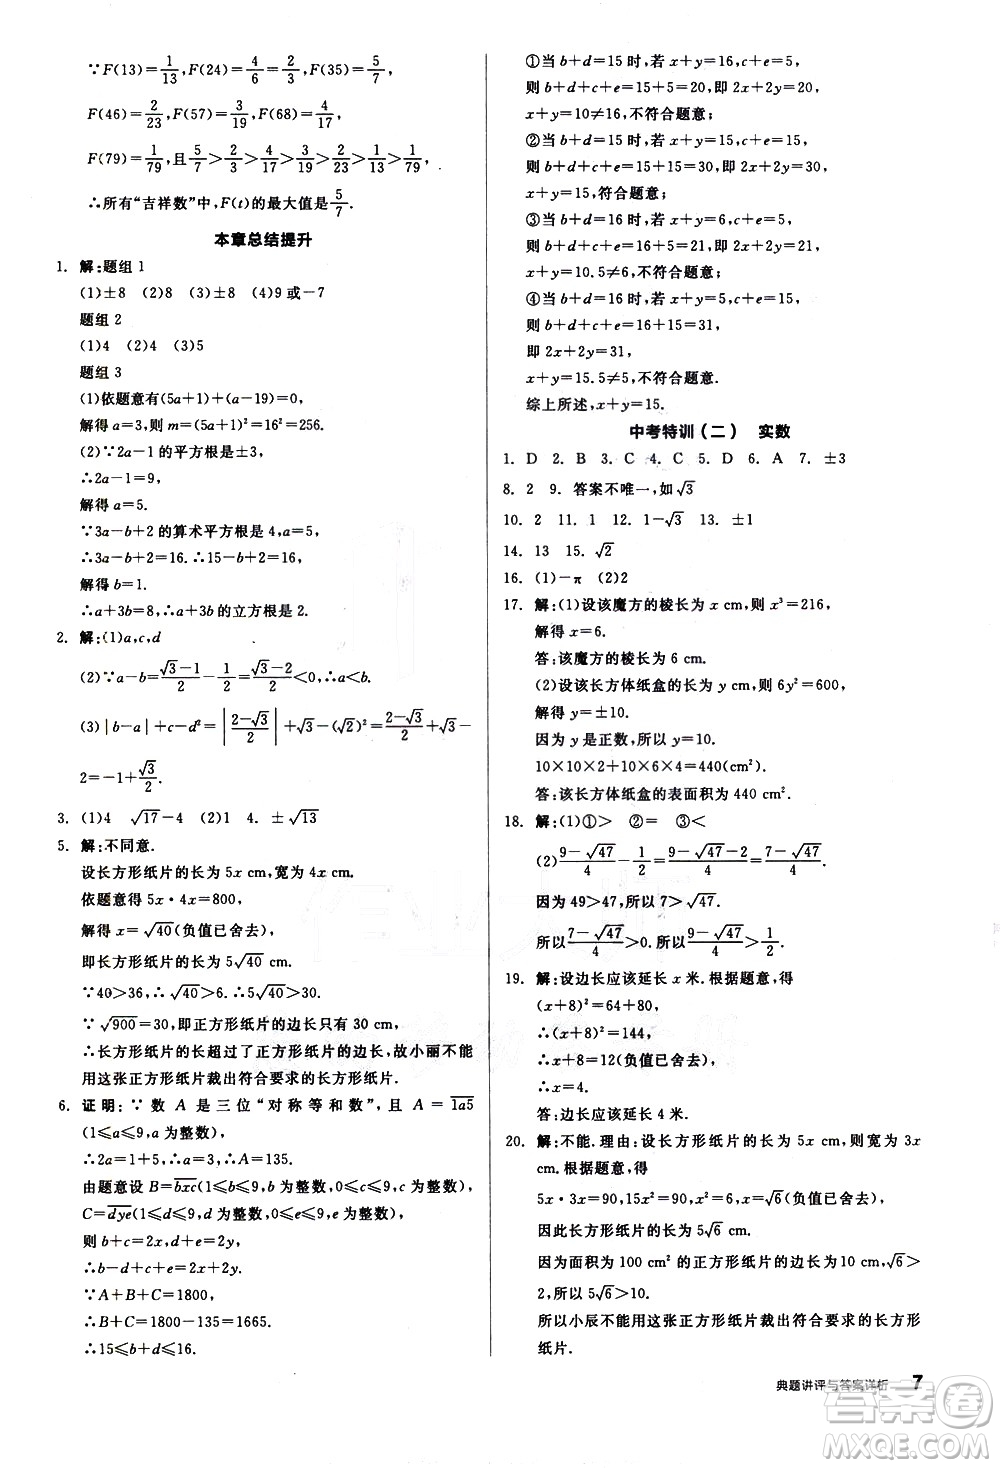 ∵F(13)=1/13,F(24)=4/6=2/3,F(35)=5/7,
F(46)=2/23,F(57)=3/19,F(68)=4/17,
F(79)=1/79,且5/7>2/3>4/17>3/19>2/23>1/13>1/79,
∴所有“吉祥数”中,F(t)的最大值是5/7.
本章总结提升
1. 解:题组1
(1)±8 (2)8 (3)±8 (4)9或-7
题组2
(1)4 (2)4 (3)5
题组3
(1)依题意有(5a+1)+(a-19)=0,
解得a=3,则m=(5a+1)²=16²=256.
(2)∵2a-1的平方根是±3,
∴2a-1=9,
解得a=5.
∵3a-b+2的算术平方根是4,a=5,
∴3a-b+2=16.∴15-b+2=16,
解得b=1.
∴a+3b=8,∴a+3b的立方根是2.
2. 解:(1)a,c,d
(2)∵a-b=(√3-1)/2-1/2=(√3-2)/2<0,∴a<b.
(3)|b-a|+c-d²=|(2-√3)/2|+√3-(√2)²=(2-√3)/2+√3-
2=-1+√3/2.
3. (1)4 √17-4 (2)1 4. ±√13
5. 解:不同意.
设长方形纸片的长为5x cm,宽为4x cm,
依题意得5x·4x=800,
解得x=√40(负值舍去),
即长方形纸片的长为5√40 cm.
∵40>36,∴√40>6.∴5√40>30.
∵√900=30,即正方形纸片的边长只有30 cm,
∴长方形纸片的长超过了正方形纸片的边长,故小丽不能
用这张正方形纸片裁出符合要求的长方形纸片.
6. 证明:∵数A是三位“对称等和数”,且A=1a5
(1≤a≤9,a为整数),
∴2a=1+5,∴a=3,∴A=135.
由题意设B=bxc(1≤b≤9,b为整数,1≤c≤9,c为整数),
C=dye(1≤d≤9,d为整数,1≤e≤9,e为整数),
则b+c=2x,d+e=2y,
∴b+d+c+e=2x+2y.
∵A+B+C=1800,
∴B+C=1800-135=1665.
∴15≤b+d≤16.
①当b+d=15时,若x+y=16,c+e=5,
则b+d+c+e=15+5=20,即2x+2y=20,
x+y=10≠16,不符合题意;
②当b+d=15时,若x+y=15,c+e=15,
则b+d+c+e=15+15=30,即2x+2y=30,
x+y=15,符合题意;
③当b+d=16时,若x+y=6,c+e=5,
则b+d+c+e=16+5=21,即2x+2y=21,
x+y=10.5≠6,不符合题意;
④当b+d=16时,若x+y=5,c+e=15,
则b+d+c+e=16+15=31,
即2x+2y=31,
x+y=15.5≠5,不符合题意.
综上所述,x+y=15.
中考特训(二) 实数
1. D 2. B 3. C 4. C 5. D 6. A 7. ±3
8. 2 9. 答案不唯一,如√3
10. 2 11. 1 12. 1-√3 13. ±1
14. 13 15. √2
16. (1)-π (2)2
17. 解:(1)设该魔方的棱长为x cm,则x³=216,
解得x=6.
答:该魔方的棱长为6 cm.
(2)设该长方体纸盒的长为y cm,则6y²=600,
解得y=±10.
因为y是正数,所以y=10.
10×10×2+10×6×4=440(cm²).
答:该长方体纸盒的表面积为440 cm².
18. 解:(1)①> ②= ③<
(2)(9-√47)/4-1/2=(9-√47-2)/4=(7-√47)/4,
因为49>47,所以7>√47.
所以(7-√47)/4>0.所以(9-√47)/4>1/2.
19. 解:设边长应该延长x米.根据题意,得
(x+8)²=64+80,
∴(x+8)²=144,
∴x+8=12(负值已舍去),
∴x=4.
答:边长应该延长4米.
20. 解:不能.理由:设长方形纸片的长为5x cm,则宽为3x
cm.根据题意,得
5x·3x=90,15x²=90,x²=6,x=√6(负值舍去),
因此长方形纸片的长为5√6 cm.
因为面积为100 cm²的正方形纸片的边长为10 cm,√6>
2,所以5√6>10.
所以小辰不能用这张正方形纸片裁出符合要求的长方形
纸片.
典题讲评与答案详析 7
答案圈
MXQE.COM